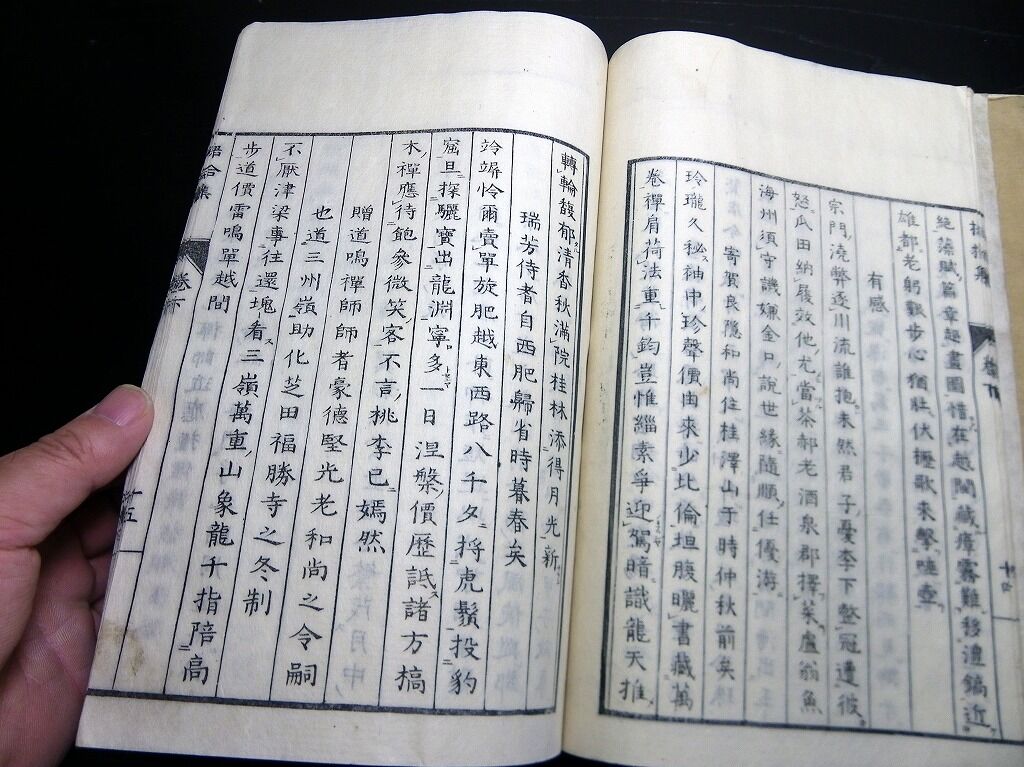 絶藻賦篇章趣畫圖惜在越閩藏瘴霧難移澧鎬近
雄都老躬艱步心猶壯伏櫪歌來擊唾壺
有感
宗門澆弊逐川流誰抱未然君子憂李下整冠遭彼
怒瓜田納履效他尤當茶郝老酒泉郡擇菜盧翁魚
海州須守譏嫌金口說世緣隨順任優游
寄賀良隱和尚住桂澤山于時仲秋前矣
玲瓏久秘袖中珍聲價由來少比倫坦腹曬書藏萬
卷禪肩荷法重千鈞豈惟緇素爭迎駕暗識龍天推
轉輪馥郁清香秋滿院桂林添得月光新
瑞芳侍者自西肥歸省時暮春矣
竛竮怜爾賣單旋肥越東西路八千夕捋虎鬚投豹
窟旦探驪寶出龍淵寧多一日涅槃價歷詆諸方槁
木禪應待飽參微笑客不言桃李已嫣然
贈道鳴禪師師者豪德堅光老和尚之令嗣
也道三州嶺助化芝田福勝寺之冬制
不厭津梁事往還塊看三嶺萬重山象龍千指陪高
步道價雷鳴單越間
卷下